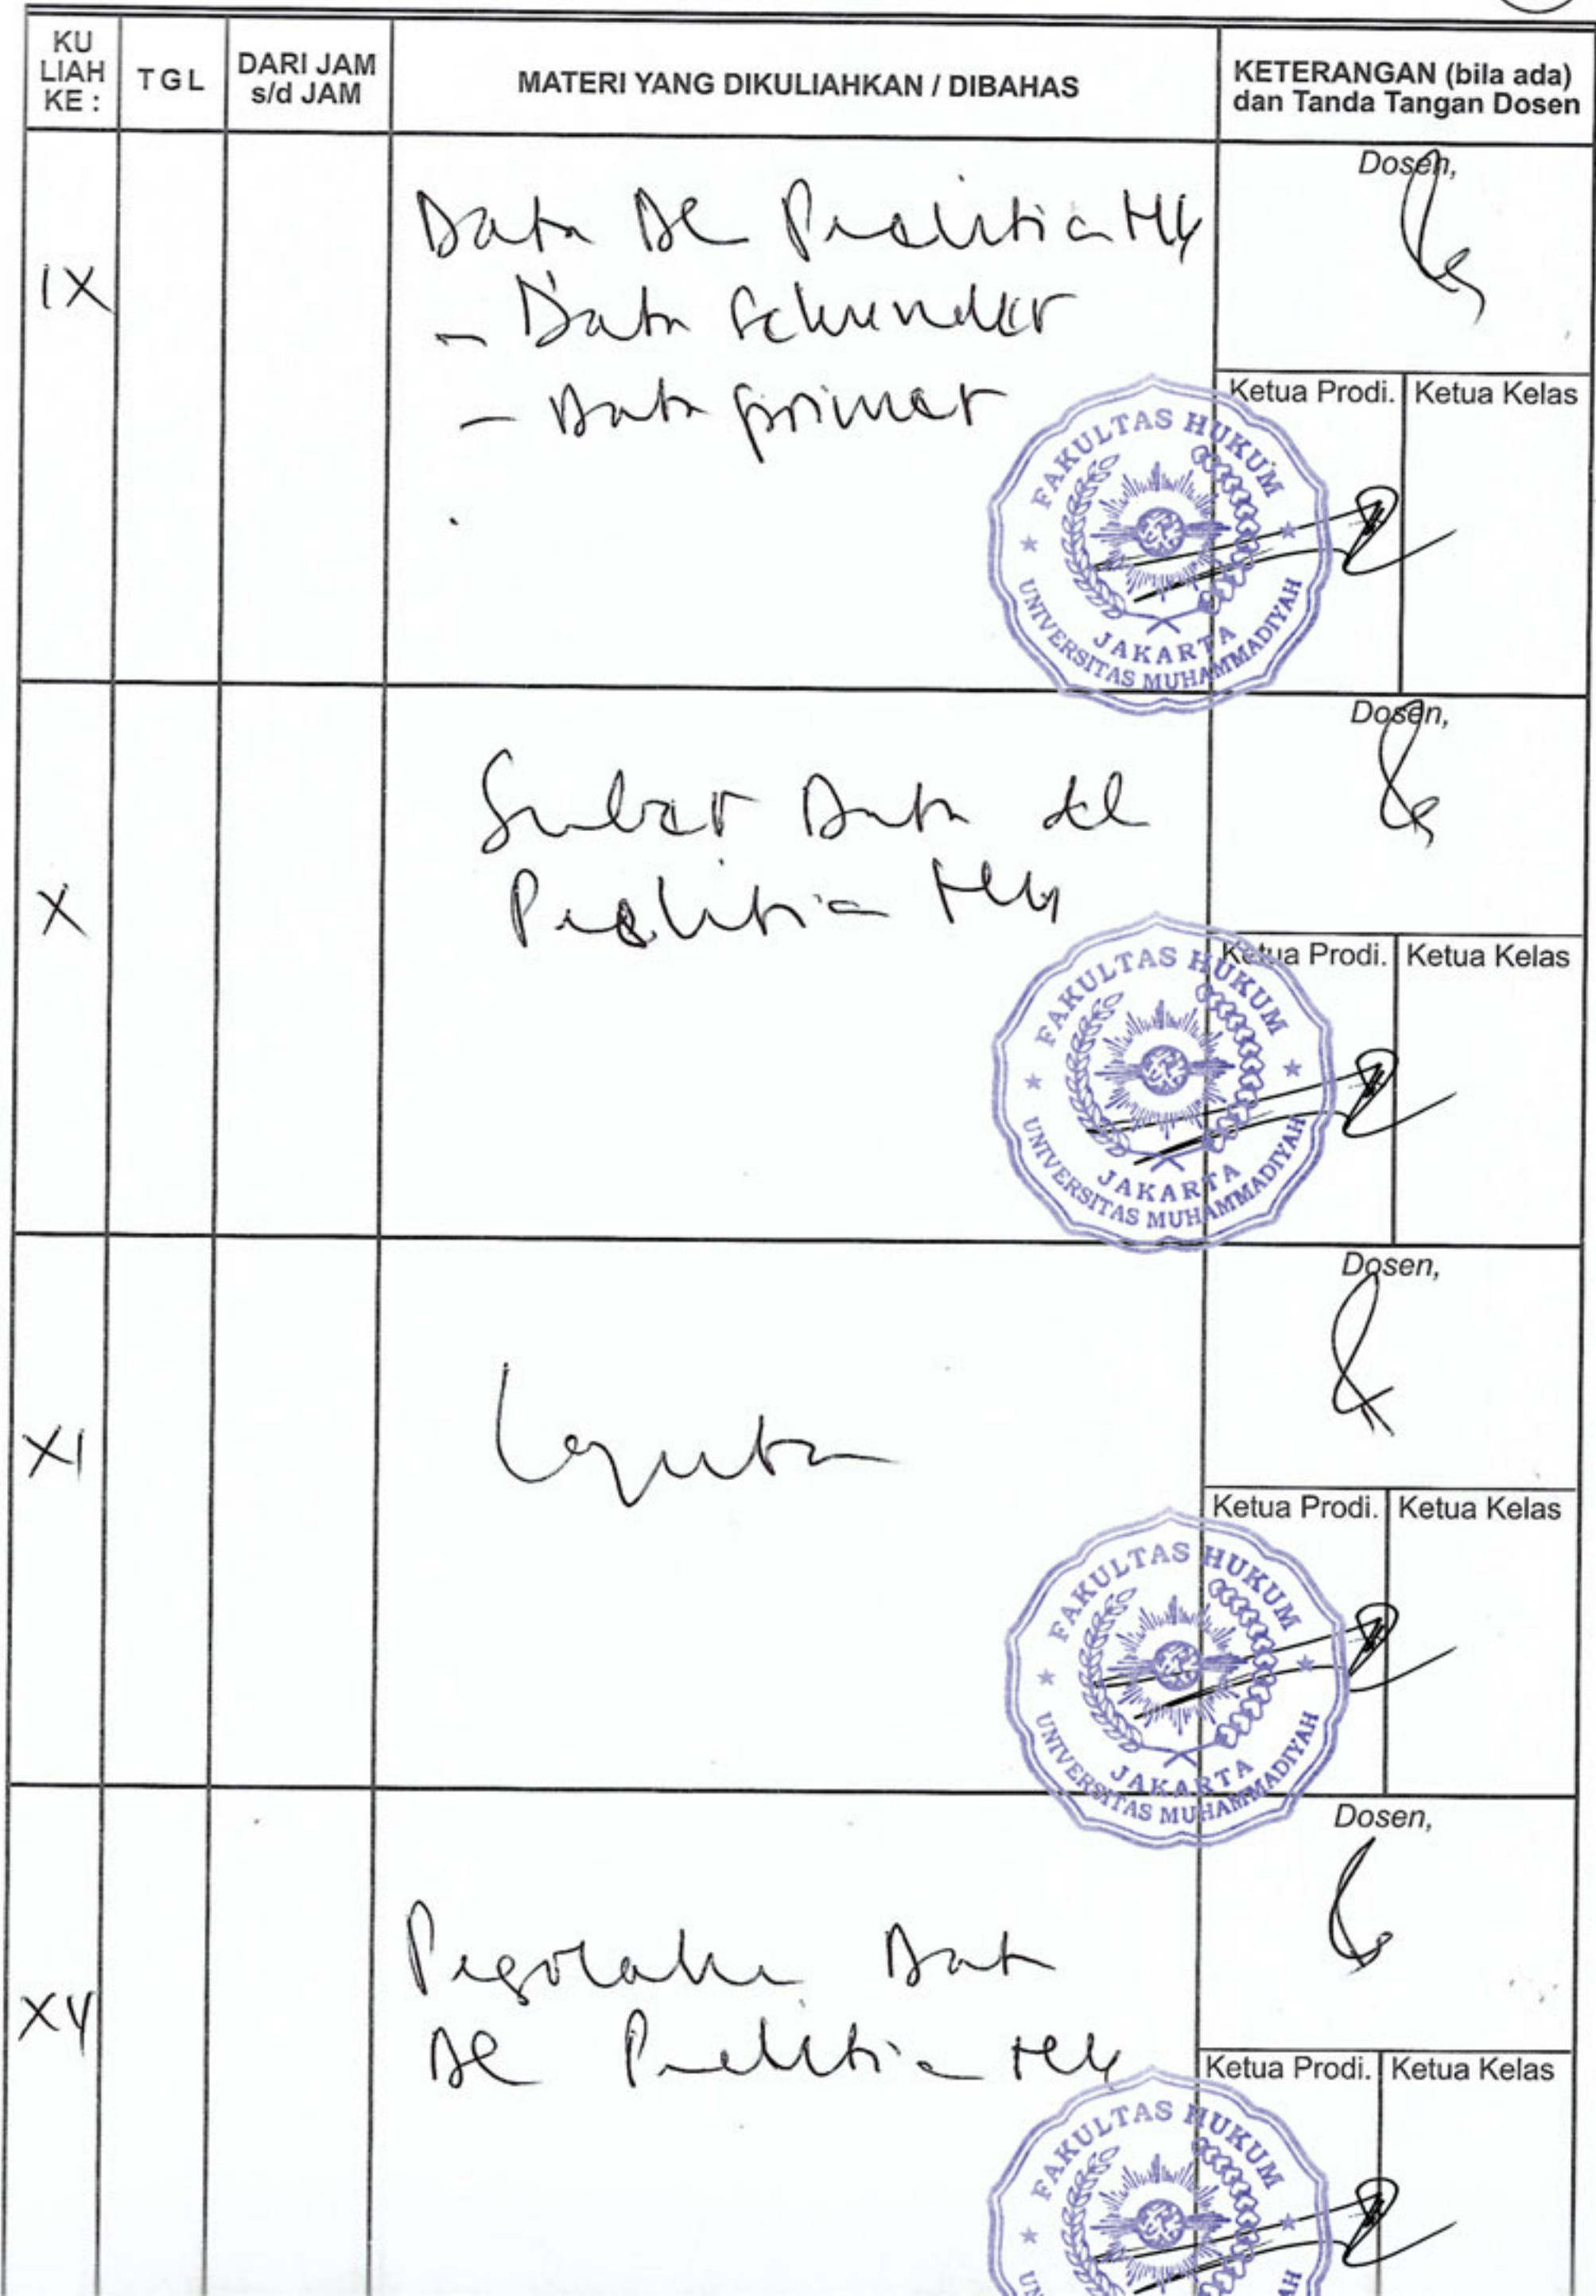 KU LIAH KE : TGL DARI JAM s/d JAM MATERI YANG DIKULIAHKAN / DIBAHAS KETERANGAN (bila ada) dan Tanda Tangan Dosen
Dosen,
IX
Data Dl Penelitian Hk
- Data Sekunder
- Data primer
Ketua Prodi. Ketua Kelas
FAKULTAS HUKUM
UNIVERSITAS MUHAMMADIYAH
JAKARTA
Dosen,
X
Sumber Data dl
Penelitian Hk
Ketua Prodi. Ketua Kelas
FAKULTAS HUKUM
UNIVERSITAS MUHAMMADIYAH
JAKARTA
Dosen,
XI
Lanjutan
Ketua Prodi. Ketua Kelas
FAKULTAS HUKUM
UNIVERSITAS MUHAMMADIYAH
JAKARTA
Dosen,
XV
Pengolahan Data
Dl Penelitian Hk
Ketua Prodi. Ketua Kelas
FAKULTAS HUKUM